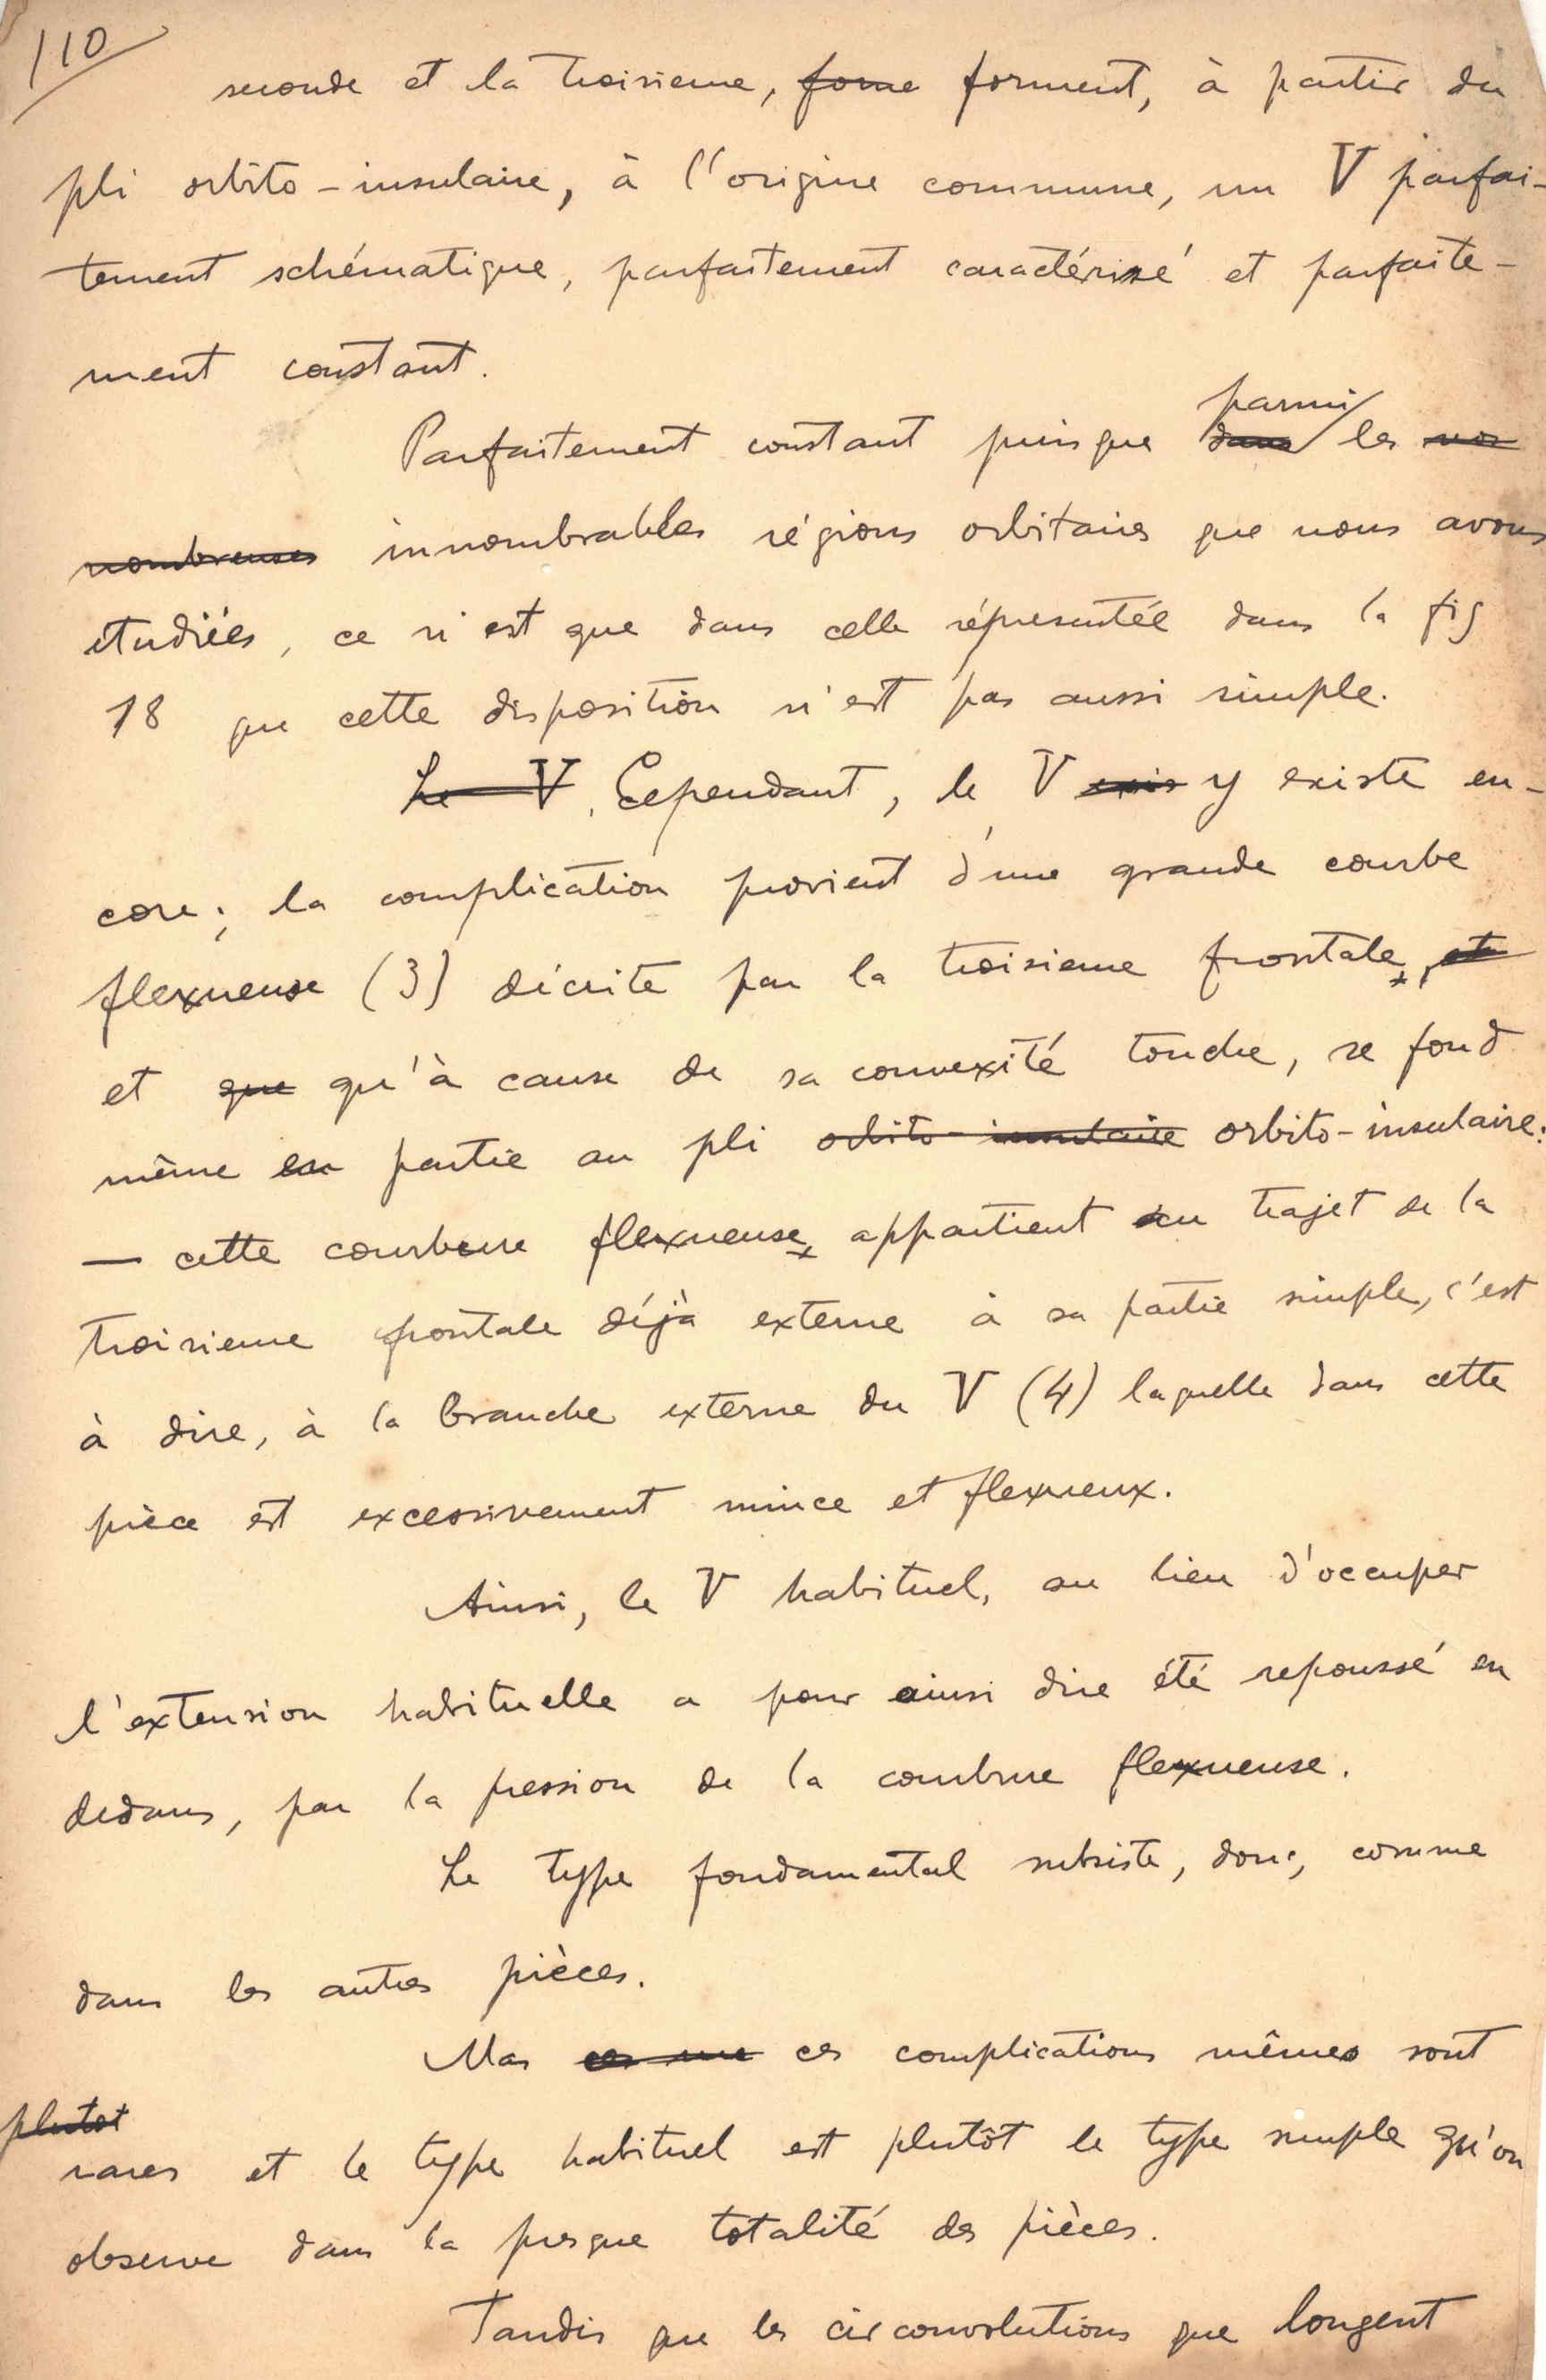 110
seconde et la troisieme, forme forment, à partir du
pli orbito-insulaire, à l'origine commune, un V parfai-
tement schématique, parfaitement caractérisé et parfaite-
ment constant.
parmi
Parfaitement constant puisque dans les nos
nombreuses innombrables régions orbitaires que nous avons
étudiées, ce n'est que dans celle répresentée dans la fig
18 que cette disposition n'est pas aussi simple.
Le V. Cependant, le V exis y existe en-
core; la complication provient d'une grande courbe
flexueuse (3) décrite par la troisieme frontale, et
et que qu'à cause de sa convexité touche, se fond
même en partie au pli orbito-insulaire orbito-insulaire:
— cette courbure flexueuse appartient au trajet de la
troisieme frontale déjà externe à sa partie simple, c'est
à dire, à la branche externe du V (4) laquelle dans cette
pièce est excessivement mince et flexueux.
Ainsi, le V habituel, au lieu d'occuper
l'extension habituelle a pour ainsi dire été repoussé en
dedans, par la pression de la courbure flexueuse.
Le type fondamental subsiste, donc, comme
dans les autres pièces.
Mas ces me ces complications mêmes sont
plutot
rares et le type habituel est plutôt le type simple qu'on
observe dans la presque totalité des pièces.
Tandis que les circonvolutions que longent